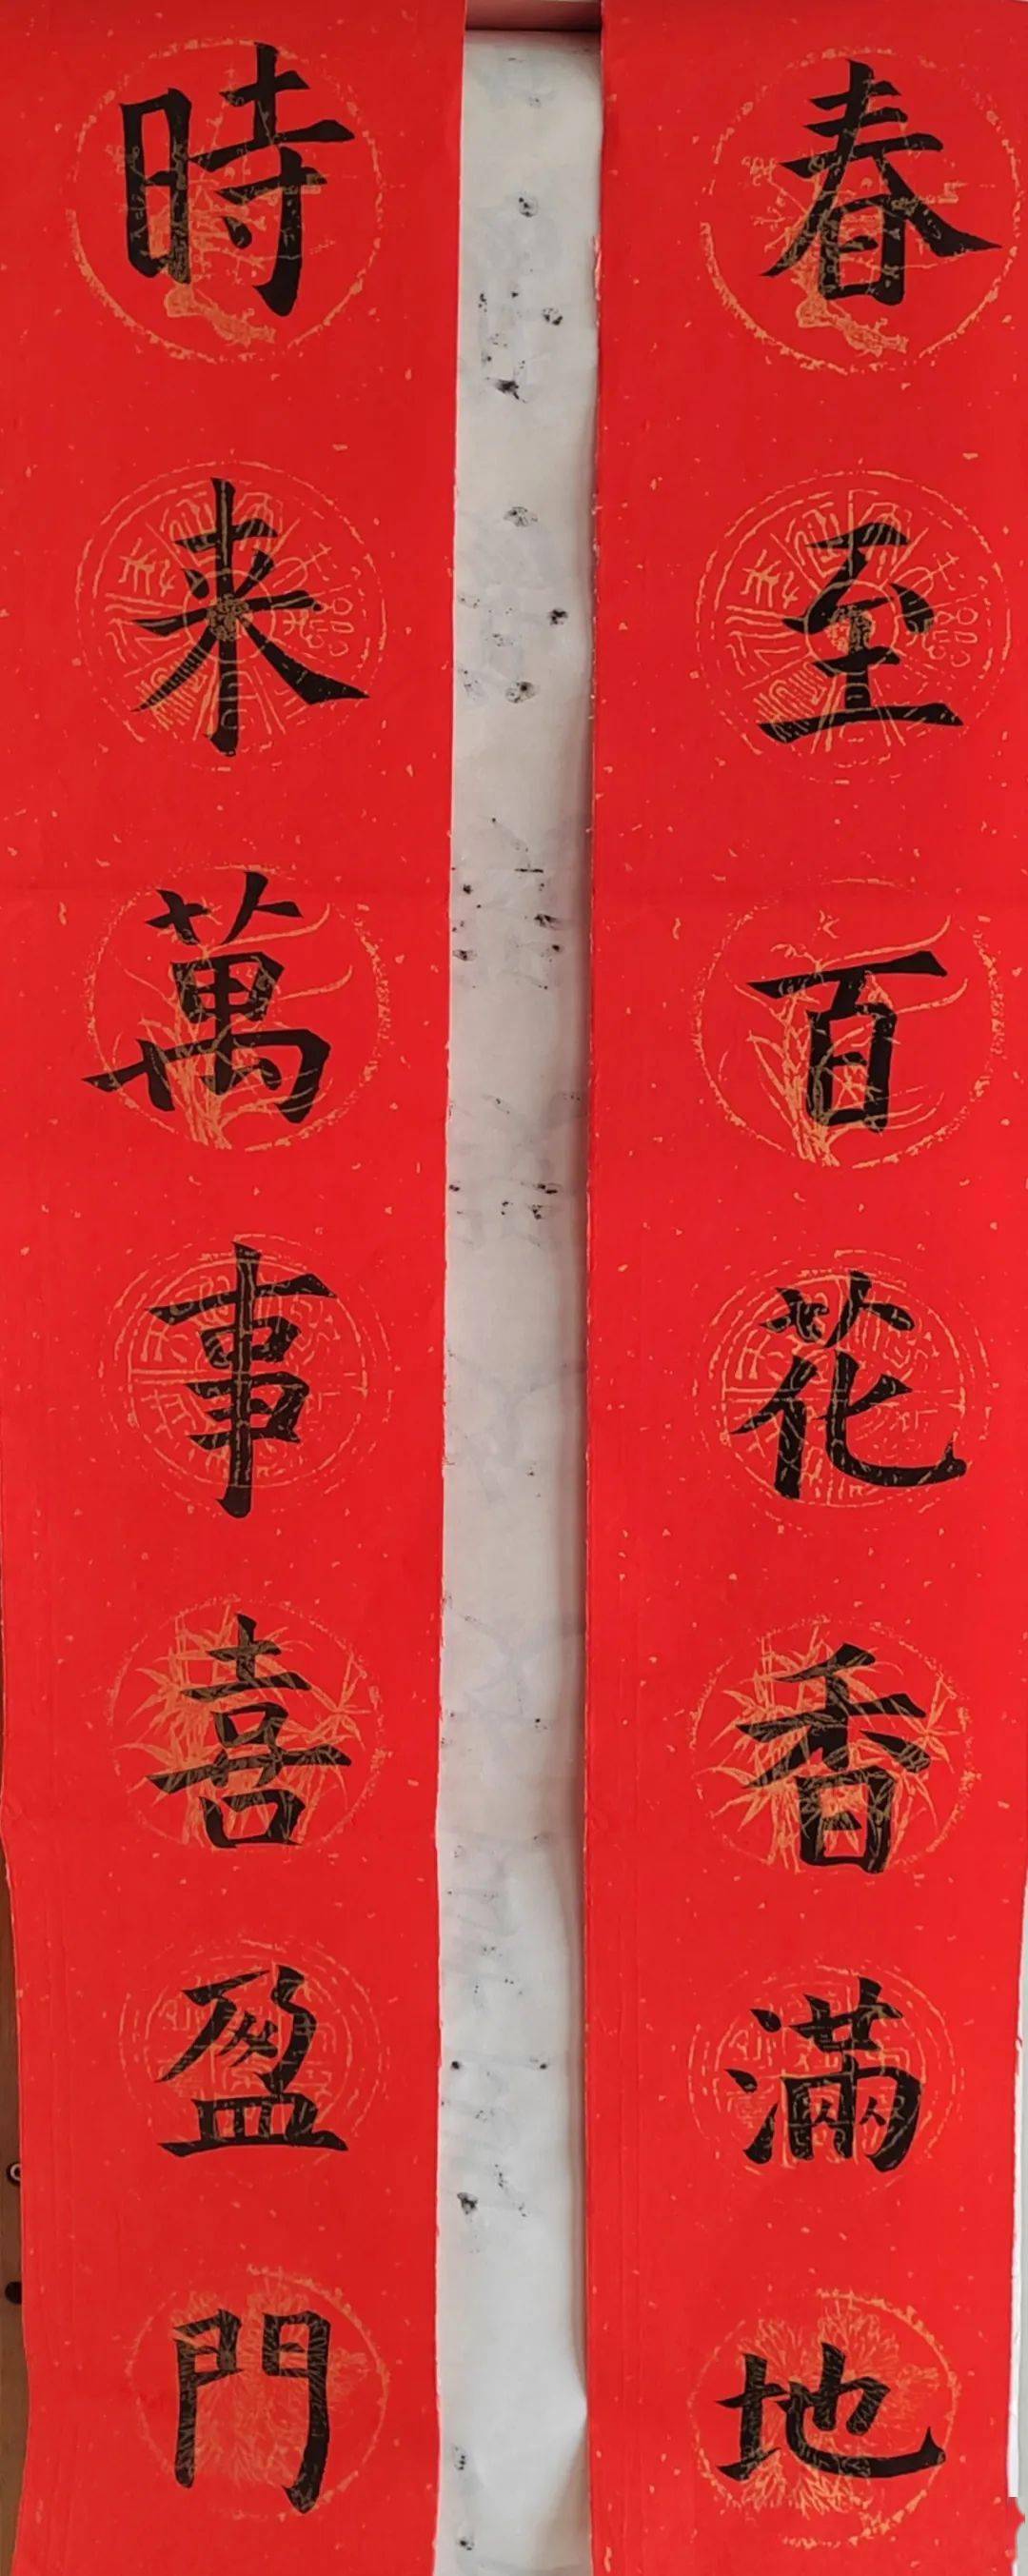 春至百花香滿地
時来萬事喜盈門